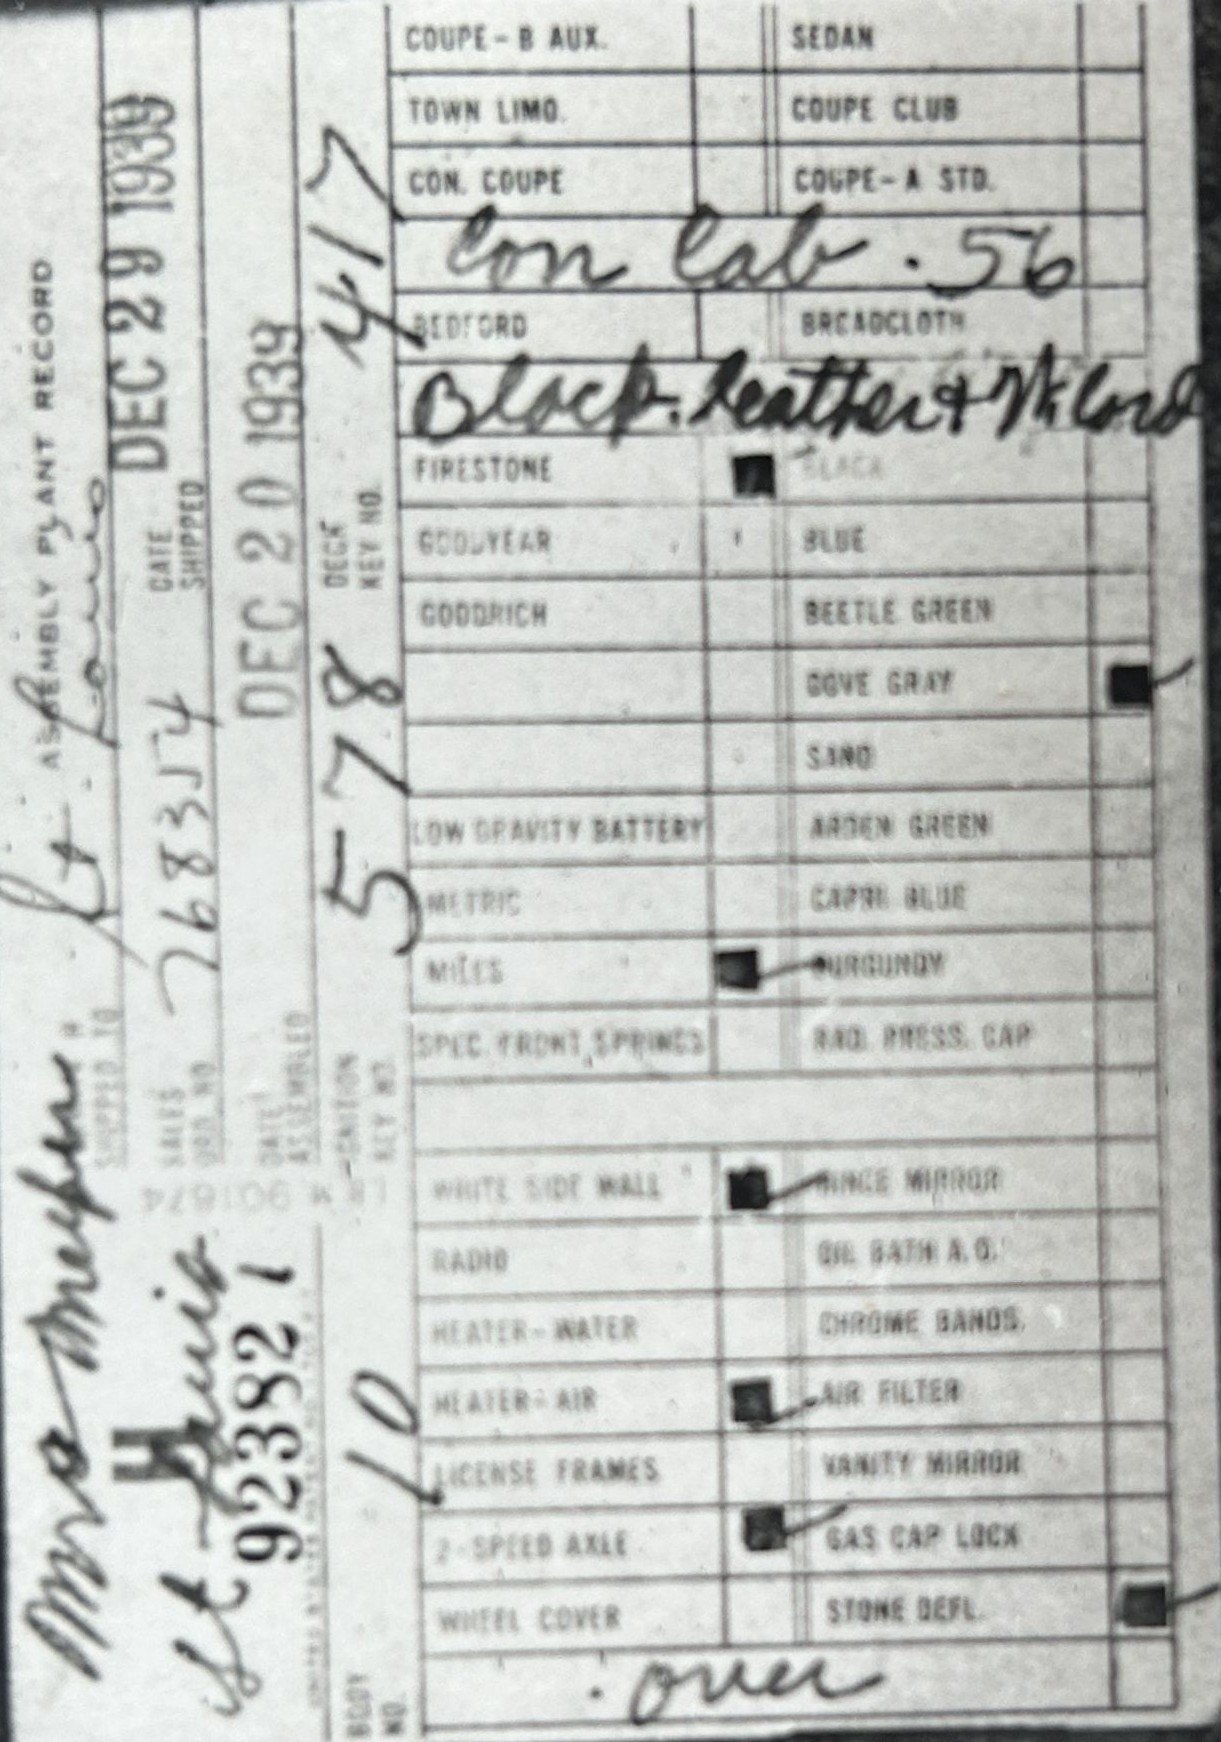 ASSEMBLY PLANT RECORD
St Louis
SHIPPED TO
SALES
ORD. NO.
768354
DATE
SHIPPED
DEC 29 1939
DATE
ASSEMBLED
DEC 20 1939
IGNITION
KEY NO.
578
DECK
KEY NO.
417
Mrs
H
St Louis
923821
BODY
NO.
10
COUPE-B AUX. SEDAN
TOWN LIMO. COUPE CLUB
CON. COUPE COUPE-A STD.
Con Cab. 56
BEDFORD BROADCLOTH
Black Leather & W. Cord
FIRESTONE BLACK
GOODYEAR BLUE
GOODRICH BEETLE GREEN
DOVE GRAY
SAND
LOW GRAVITY BATTERY ARDEN GREEN
METRIC CAPRI BLUE
MILES BURGUNDY
SPEC. FRONT SPRINGS RAD. PRESS. CAP
WHITE SIDE WALL HINGE MIRROR
RADIO OIL BATH A.C.
HEATER-WATER CHROME BANDS.
HEATER-AIR AIR FILTER
LICENSE FRAMES VANITY MIRROR
2-SPEED AXLE GAS CAP LOCK
WHEEL COVER STONE DEFL.
over